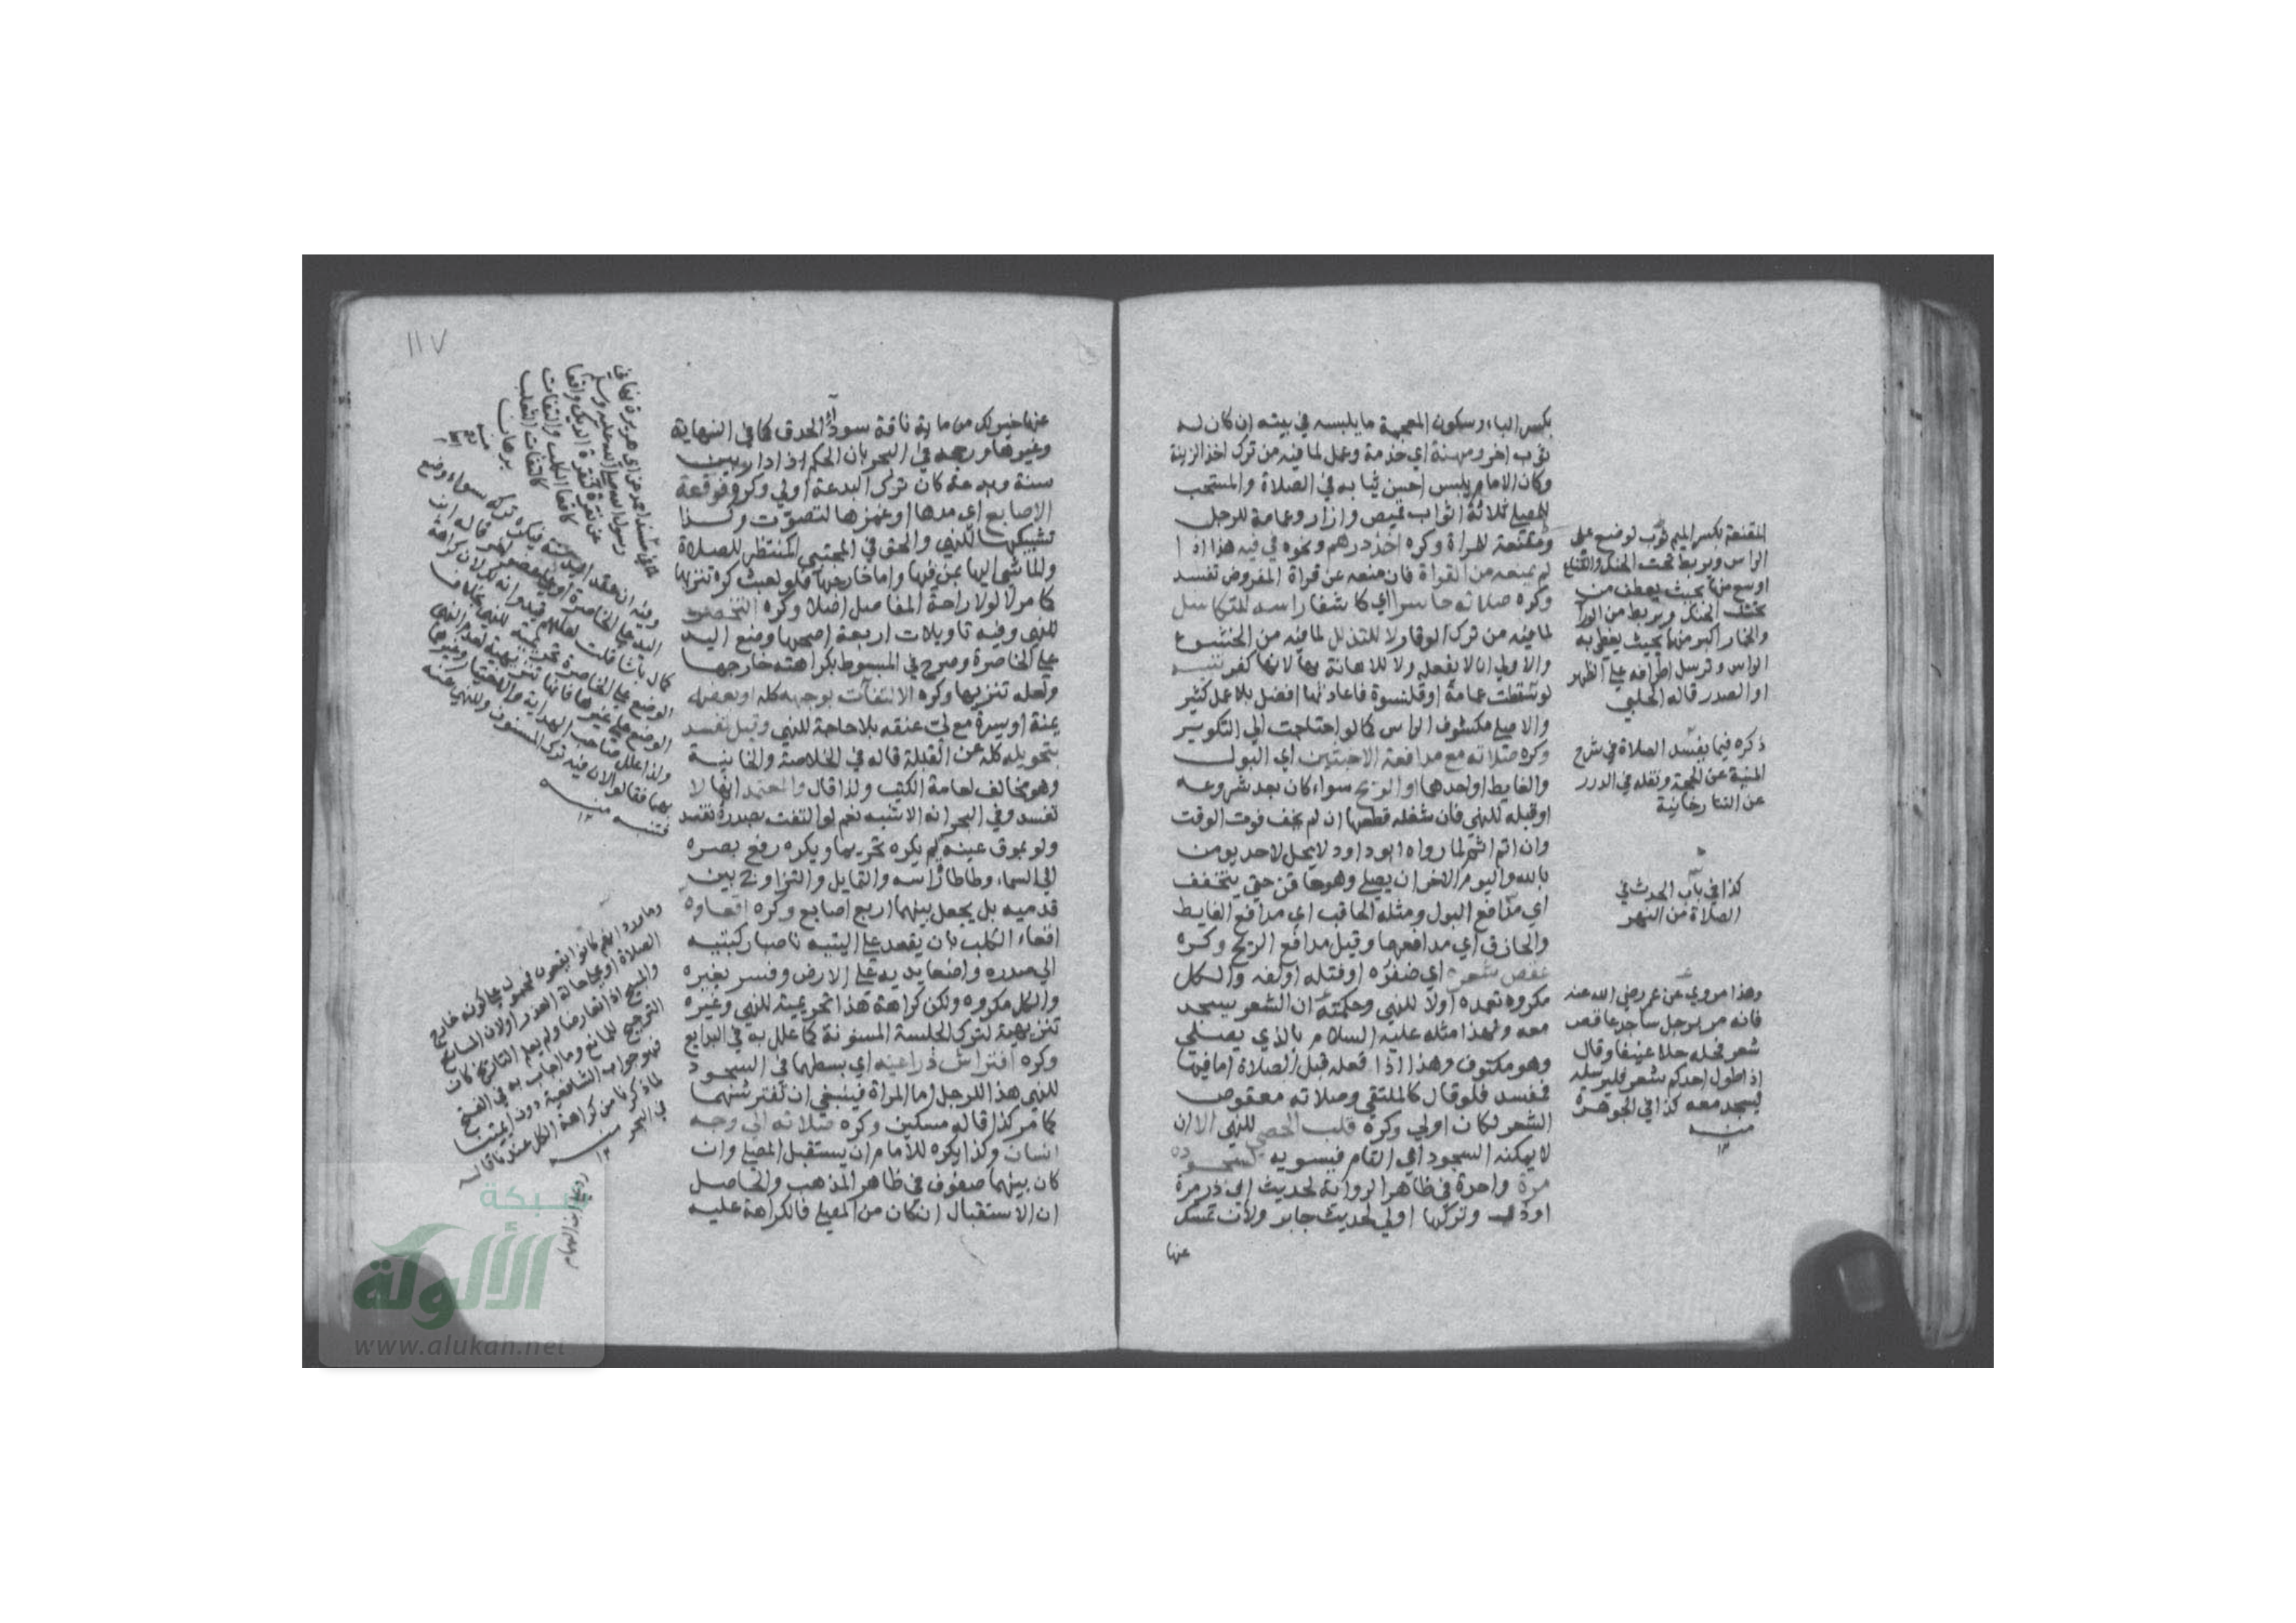 بكسر الباء وسكون المعجمة ما يلبسه في بيته ان كان له
ثوب اخر ومهنة اي خدمة وعمل لما فيه من ترك اخذ الزينة
وكان الامام يلبس احسن ثيابه في الصلاة والمستحب
للمصلي ثلاثة اثواب قميص وازار وعمامة للرجل
ومقنعة للمراة وكره اخذ درهم ونحوه في فيه هذا اذا
لم يمنعه من القراة فان منعه عن قراة المفروض تفسد
وكره صلاته حاسرا اي كاشفا راسه للتكاسل
لما فيه من ترك الوقار ولا للتذلل لما فيه من الخشوع
والاولى ان لا يفعله ولا للاهانة بها لانها كفر تنبيه
لو سقطت عمامة او قلنسوة فاعادتها افضل بلا عمل كثير
والا صلى مكشوف الراس كما لو احتاجت الى التكوير
وكره صلاته مع مدافعة الاخبثين اي البول
والغايط او احدهما او الريح سواء كان بعد شروعه
او قبله للنهي فان شغله قطعها ان لم يخف فوت الوقت
وان اتم اثم لما رواه ابو داود لا يحل لاحد يومن
بالله واليوم الاخر ان يصلي وهو حاقن حتى يتخفف
اي مدافع البول ومثله الحاقب اي مدافع الغايط
والحازق اي مدافعهما وقيل مدافع الريح وكره
عقص شعره اي ضفره او فتله او لفه والكل
مكروه تعمده اولا للنهي وحكمته ان الشعر يسجد
معه ولهذا مثله عليه السلام بالذي يصلي
وهو مكتوف وهذا اذا فعله قبل الصلاة اما فيها
ففسد فلو قال كالملتقى وصلاته معقوص
الشعر لكان اولى وكره قلب الحصى للنهي الا ان
لا يمكنه السجود اي التام فيسويه لسجوده
مرة واحدة في ظاهر الرواية لحديث ابي ذر مرة
او ذر وتركها اولى لحديث جابر ولان تمسك
عنها
المقنعة بكسر الميم ثوب لوضع على
الراس ويربط تحت الحنك والقناع
اوسع منها بحيث يعطف من
تحت الحنك ويربط من الورا
والخمار اكبر منها بحيث يغطى به
الراس وترسل اطرافه على الظهر
او الصدر قاله الحلبي
ذكره فيما يفسد الصلاة في شرح
المنية عن الحجة ونقله في الدرر
عن التتارخانية
كذا في باب الحدث في
الصلاة من النهر
وهذا مروي عن عمر رضي الله عنه
فانه مر برجل ساجد عاقص
شعر فحله حلا عنيفا وقال
اذا طول احدكم شعره فليرسله
ليسجد معه كذا في الجوهرة
منه
١٢
١١٧
عنها خير لك من ماية ناقة سود الحدق كما في النهاية
وغيرها ورجحه في البحر بان الحكم اذا دار بين
سنة وبدعة كان ترك البدعة اولى وكره فرقعة
الاصابع اي مدها او غمزها لتصوت وكذا
تشبيكها للنهي والحق في المجتبى المنتظر للصلاة
والماشي اليها بمن فيها واما خارجها فلو لعبث كره تنزيها
كما مر لا لو لا راحة المفاصل اصلا وكره التخصر
للنهي وفيه تاويلات اربعة اصحها وضع اليد
على الخاصرة وصرح في المبسوط بكراهته خارجها
ولعله تنزيها وكره الالتفات بوجهه كله او بعضه
يمنة او يسرة مع لي عنقه بلا حاجة للنهي وقيل تفسد
بتحويله كله عن القبلة قاله في الخلاصة والخانية
وهو مخالف لعامة الكتب ولذا قال والمعتمد انها لا
تفسد وفي البحر انه الاشبه نعم لو التفت بصدره تفسد
ولو بموق عينه لم يكره تحريما ويكره رفع بصره
الى السماء وطاطاة راسه والتمايل والتراوح بين
قدميه بل يجعل بينهما اربع اصابع وكره اقعاوه
اقعاء الكلب بان يقعد على اليتيه ناصبا ركبتيه
الى صدره واضعا يديه على الارض وفسر بغيره
والكل مكروه ولكن كراهة هذا تحريمية للنهي وغيره
تنزيهية لترك الجلسة المسنونة كما علل به في البدايع
وكره افتراش ذراعيه اي بسطهما في السجود
للنهي هذا للرجل اما المراة فينبغي ان تفترشهما
كما مر كذا قاله مسكين وكره صلاته الى وجه
انسان وكذا يكره للامام ان يستقبل المصلي وان
كان بينهما صفوف في ظاهر المذهب والحاصل
ان الاستقبال ان كان من المصلي فالكراهة عليه
في مسند احمد عن ابي هريرة نهاني
رسول الله صلى الله عليه وسلم
عن نقرة كنقرة الديك واقعا
كاقعا الكلب والتفات
كالتفات الثعلب
برهان
منه
اليد على الخاصرة
الوضع على الخاصرة تحريمية للنهي بخلاف
الوضع على غيرها فانها تنزيهية لعدم النهي
ولذا علل صاحب الهداية والاختيار وغيرهما
بهما فقالوا لان فيه ترك المسنون وللنهي عنه
فتنبه منه
١٢
الصلاة او على حالة العذر او لان المانع
والمبيح اذا تعارضا ولم يعلم التاريخ كان
الترجيح للمانع وما اجاب به في الفتح
فهو جواب الشافعية دون ايمتنا
لما ذكرنا من كراهة الكل عندنا قاله
في البحر منه
١٢
شبكة
الألوكة
www.alukah.net